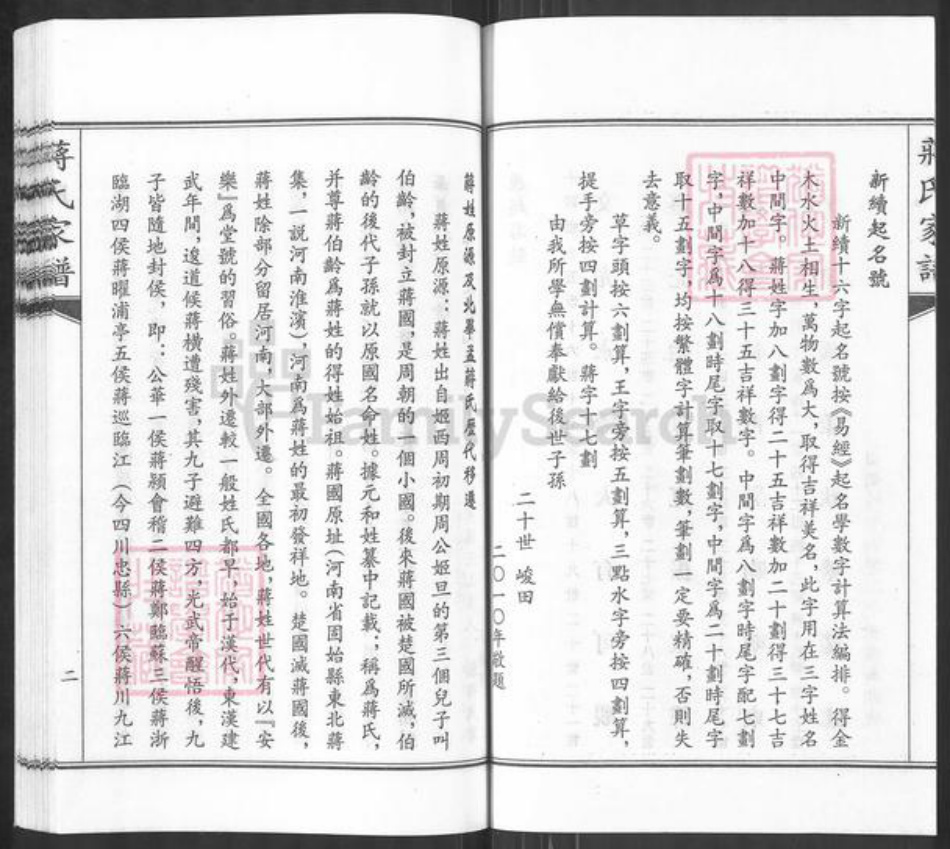 蔣氏家譜
新續起名號
新續十六字起名號按《易經》起名學數字計算法編排。得金
木水火土相生，萬物數爲大，取得吉祥美名，此字用在三字姓名
中間字。蔣姓字加八劃字得二十五吉祥數加二十劃得三十七吉
祥數加十八得三十五吉祥數字。中間字爲八劃字時尾字配七劃
字，中間字爲十八劃時尾字取十七劃字，中間字爲二十劃時尾字
取十五劃字，均按繁體字計算筆劃數，筆劃一定要精確，否則失
去意義。
草字頭按六劃算，王字旁按五劃算，三點水字旁按四劃算，
提手旁按四劃計算。蔣字十七劃
由我所學無償奉獻給後世子孫
二十世 峻田
二〇一〇年敬題
蔣姓原源及北華孟蔣氏歷代移遷
蔣姓原源：蔣姓出自姬西周初期周公姬旦的第三個兒子叫
伯齡，被封立蔣國，是周朝的一個小國。後來蔣國被楚國所滅，伯
齡的後代子孫就以原國名命姓。據元和姓纂中記載：，稱爲蔣氏，
并尊蔣伯齡爲蔣姓的得姓始祖。蔣國原址（河南省固始縣東北蔣
集，一説河南淮濱），河南爲蔣姓的最初發祥地。楚國滅蔣國後，
蔣姓除部分留居河南，大部外遷。全國各地，蔣姓世代有以『安
樂』爲堂號的習俗。蔣姓外遷較一般姓氏都早，始于漢代，東漢建
武年間，逡道候蔣橫遭殘害，其九子避難四方，光武帝醒悟後，九
子皆隨地封侯，即：公華一侯蔣穎會稽二侯蔣鄭臨蘇三侯蔣浙
臨湖四侯蔣曜浦亭五侯蔣巡臨江（今四川忠縣）六侯蔣川九江
蔣氏家譜
二
FamilySearch